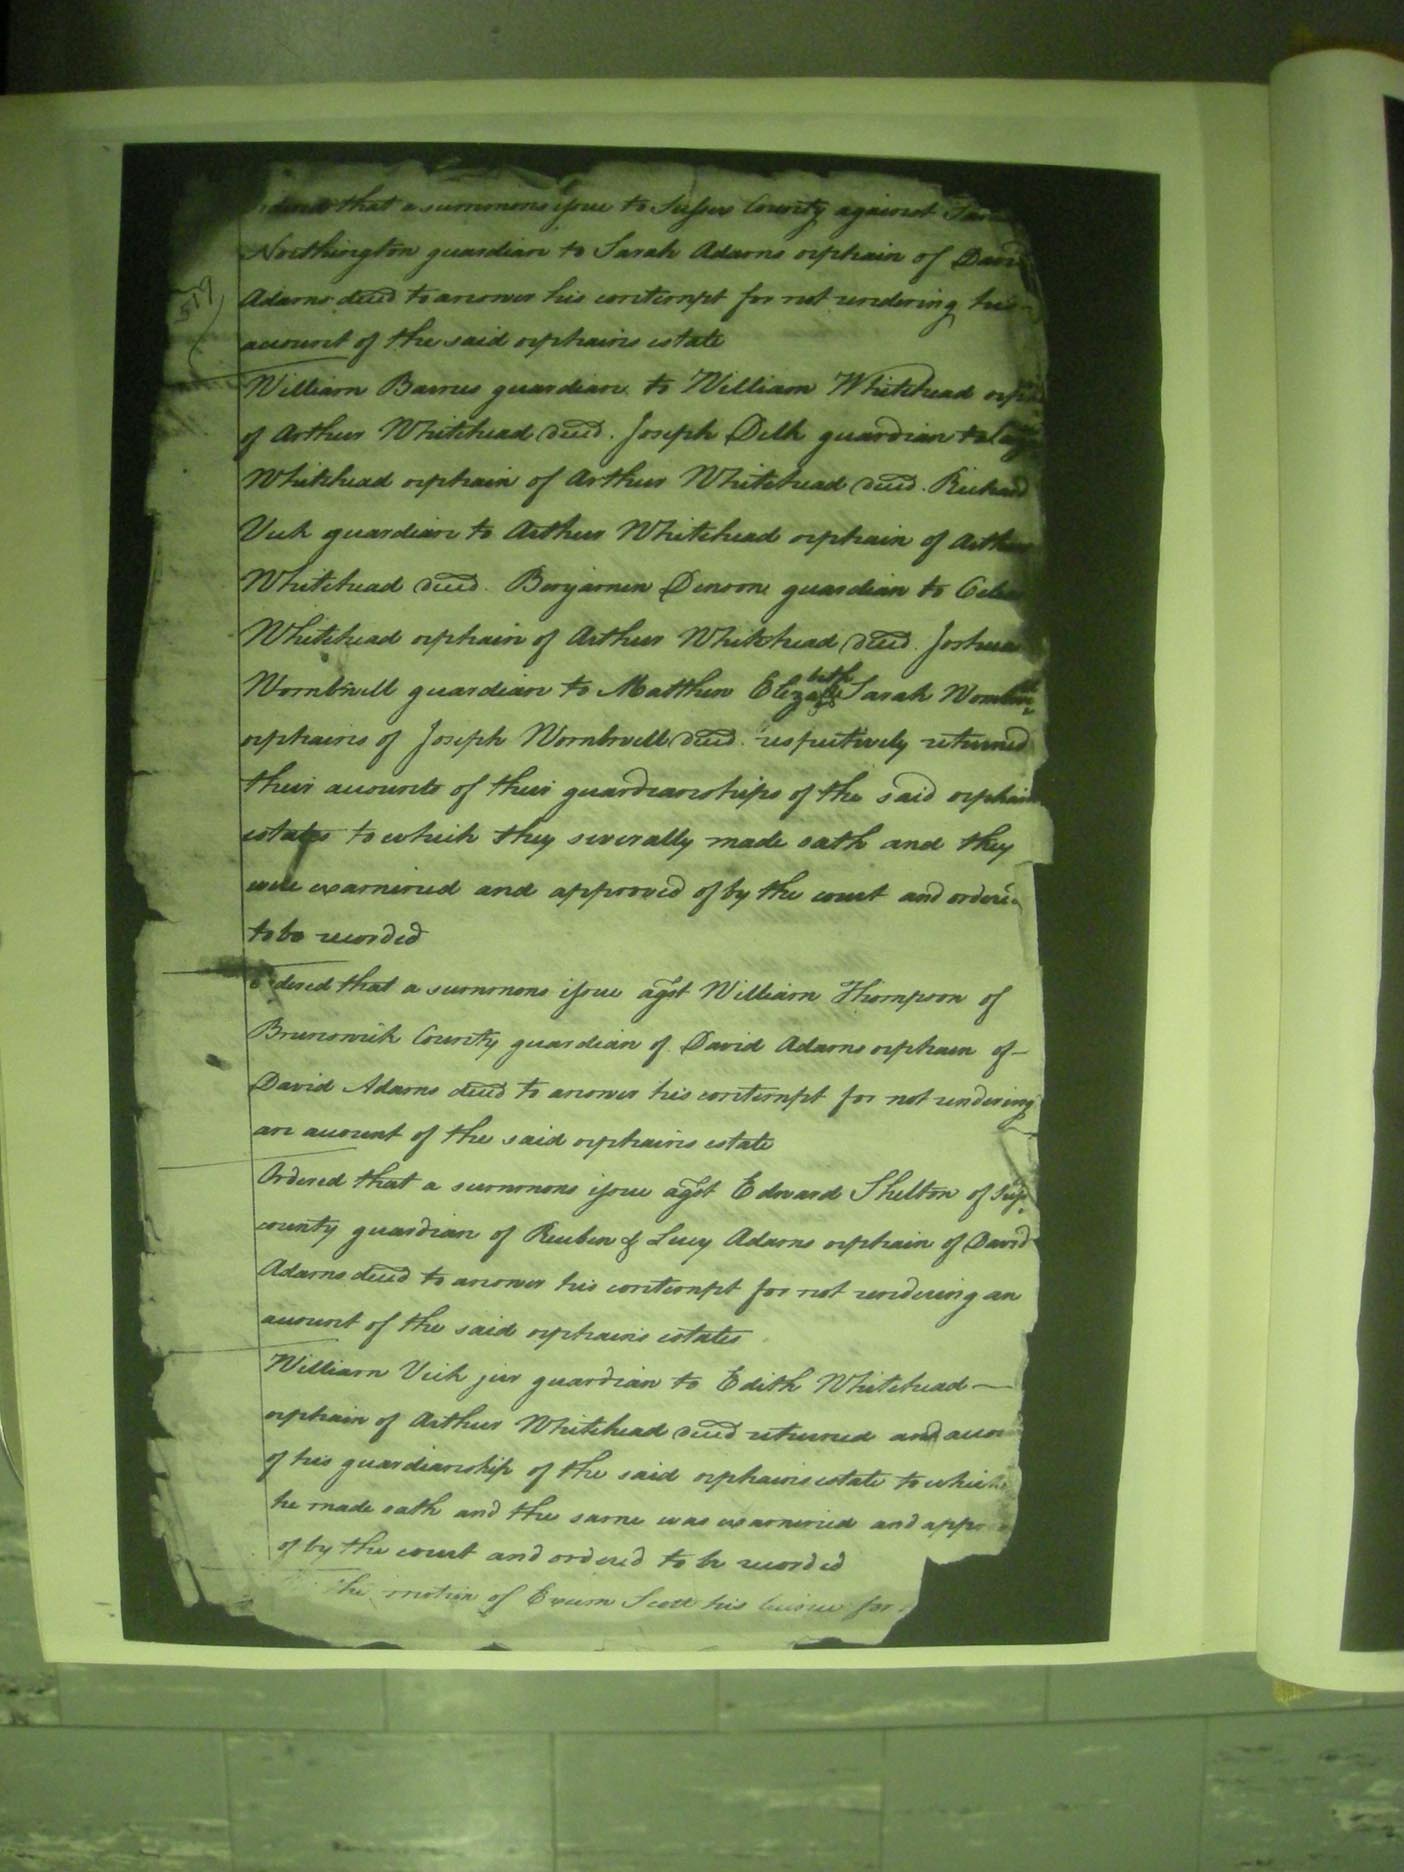 517
Ordered that a summons issue to Sussex County against
Northington guardian to Sarah Adams orphain of David
Adams deced to answer his contempt for not rendering his
account of the said orphains estate
William Barnes guardian to William Whitehead orphain
of Arthur Whitehead deced. Joseph Delk guardian to
Whitehead orphain of Arthur Whitehead deced. Richard
Vick guardian to Arthur Whitehead orphain of Arthur
Whitehead deced. Benjamin Denson guardian to Celia
Whitehead orphain of Arthur Whitehead deced. Joshua
Wombwell guardian to Matthew Elizabeth & Sarah Wombwell
orphains of Joseph Wombwell deced. respectively returned
their accounts of their guardianships of the said orphains
estates to which they severally made oath and they
were examined and approved of by the court and ordered
to be recorded
Ordered that a summons issue agst William Thompson of
Brunswick County guardian of David Adams orphain of
David Adams deced to answer his contempt for not rendering
an account of the said orphains estate
Ordered that a summons issue agst Edward Shelton of Suss.
county guardian of Reuben & Lucy Adams orphain of David
Adams deced to answer his contempt for not rendering an
account of the said orphains estates
William Vick jur guardian to Edith Whitehead
orphain of Arthur Whitehead deced returned and accou
of his guardianship of the said orphains estate to which
he made oath and the same was examined and appro
of by the court and ordered to be recorded
the motion of Exum Scott his license for